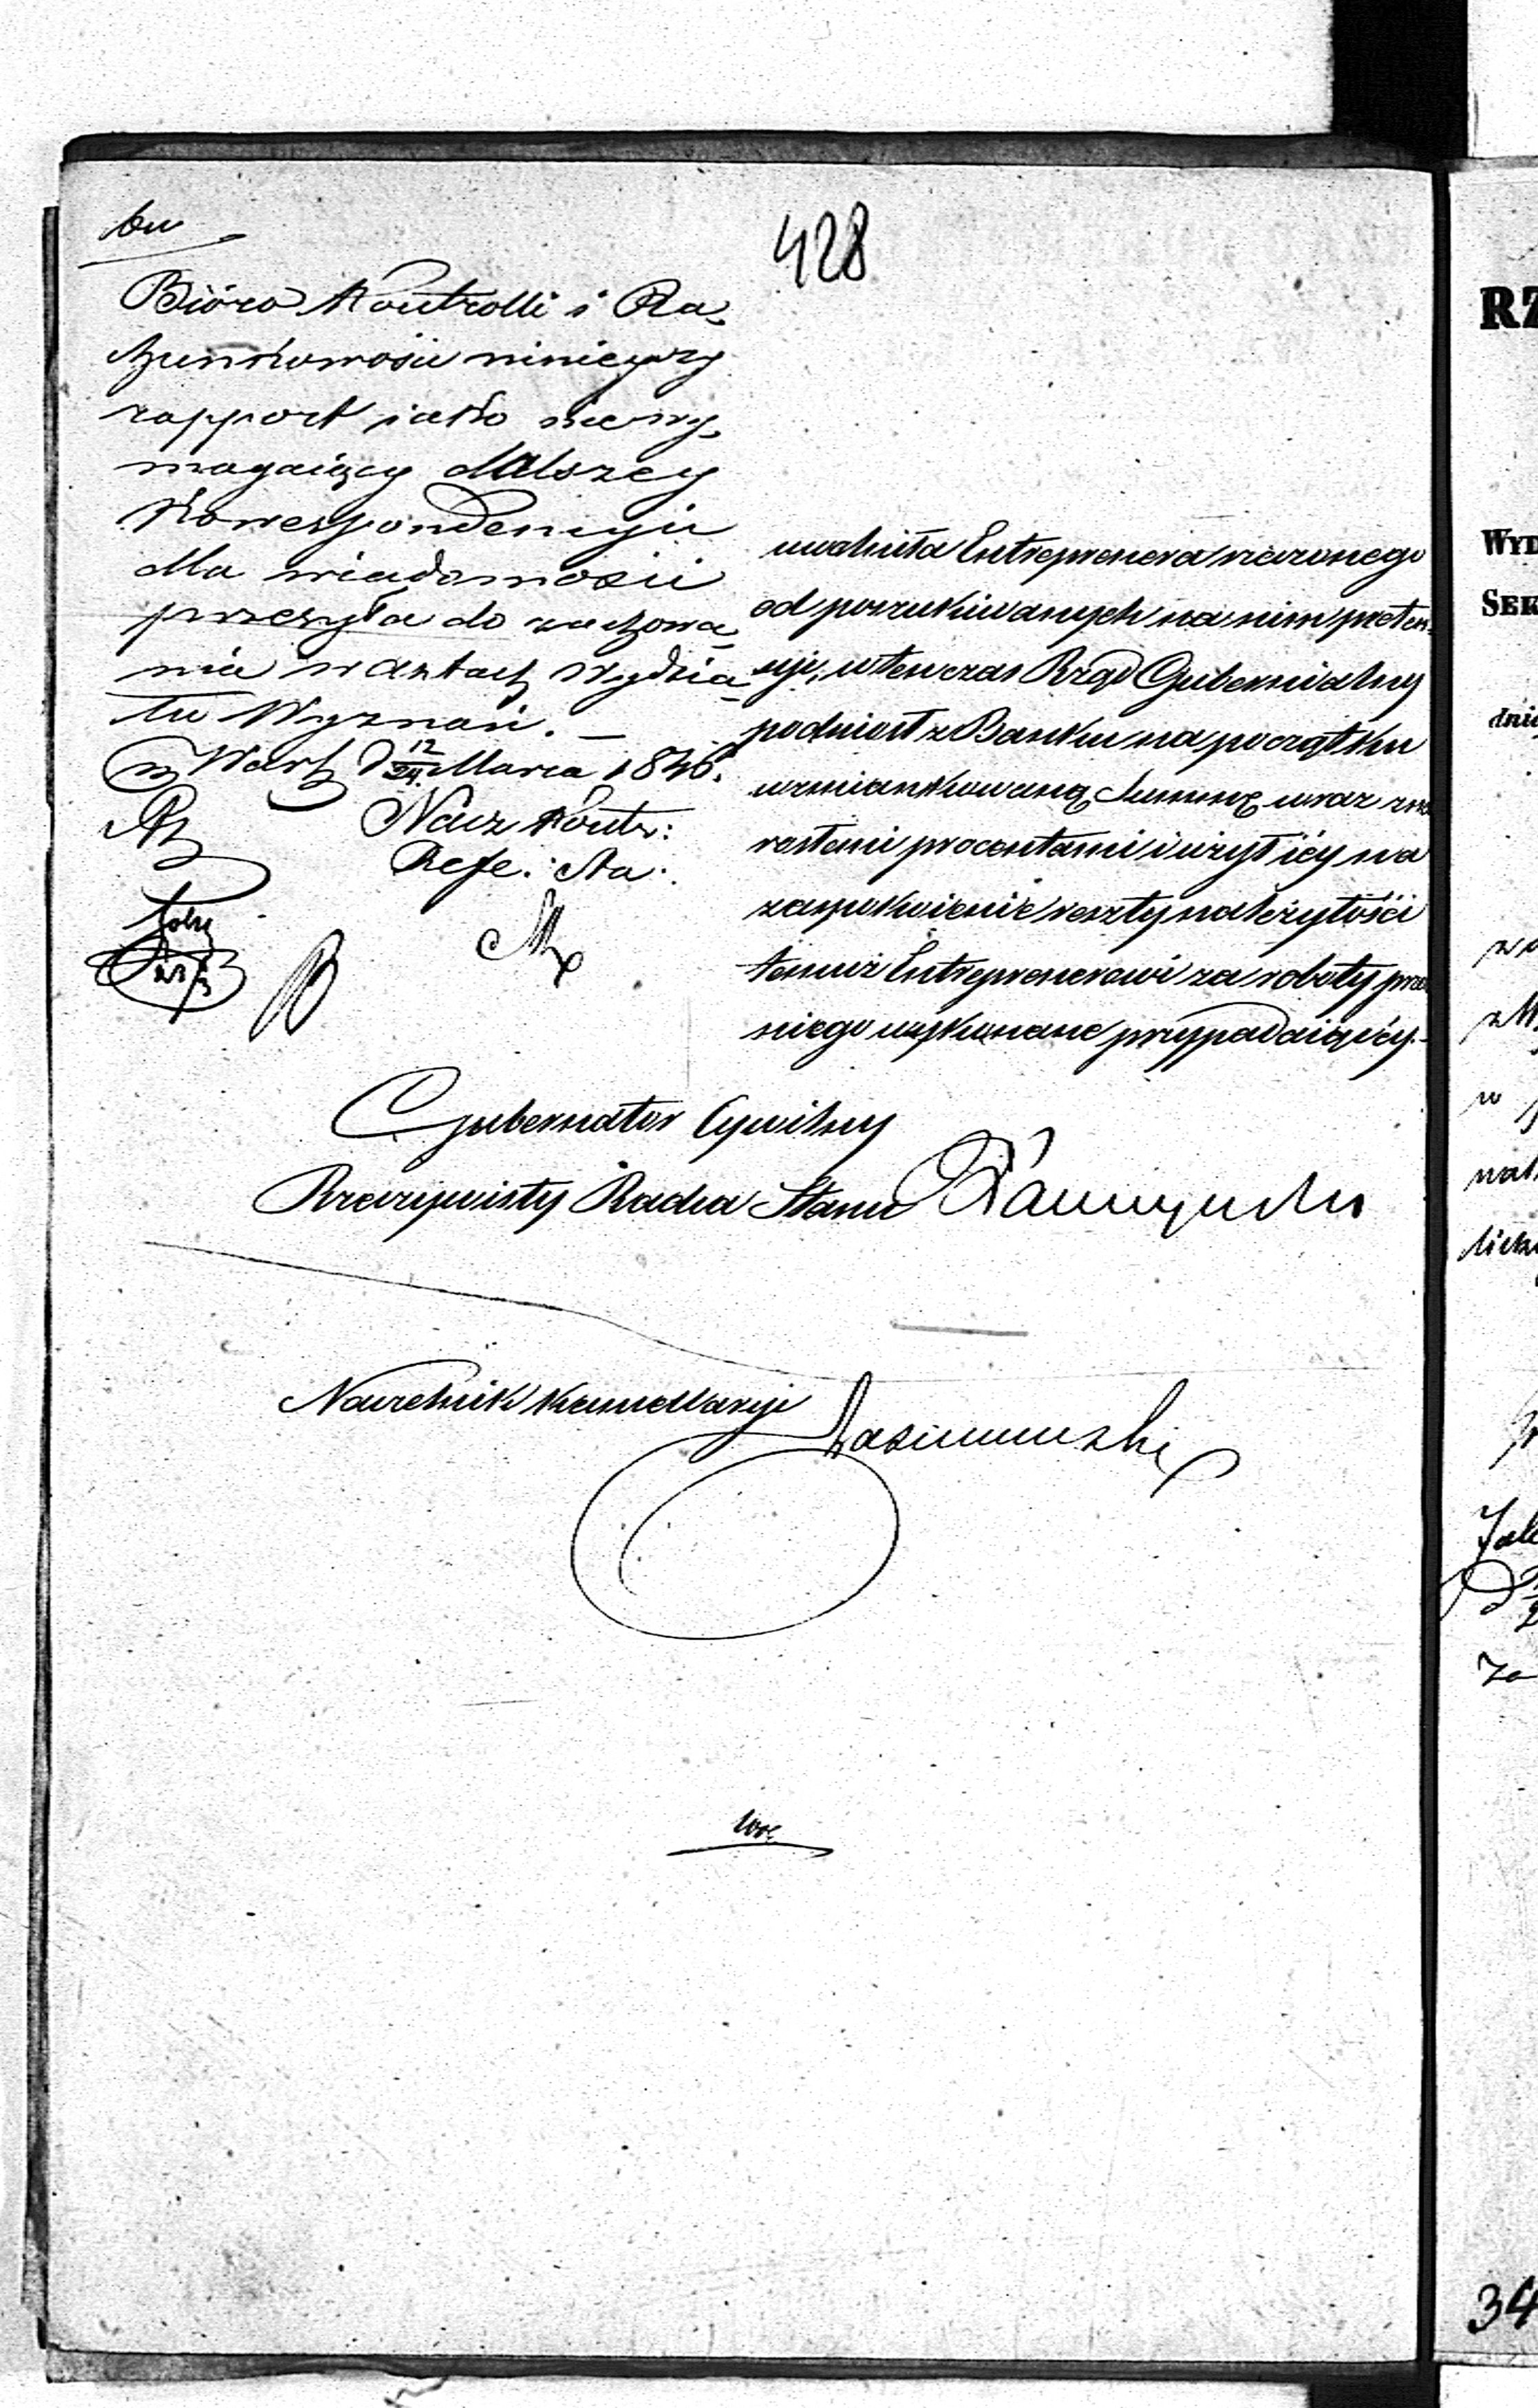 428
Bióro Kontrolli i Ra-
chunkowości ninieyszy
rapport iako niewy-
magaiący dalszey
Korrespondencyi
dla wiadomości
przesyła do zachowa-
nia w aktach Wydzia-
łu Wyznań. —
w Warsz d 12/24 Marca 1846.
Nacz Kontr:
Refe:
uwolniła Entreprenera rzeczonego
od poszukiwanych na nim preten-
syi, wtenczas Rząd Gubernialny
podniosł z Banku na początku
wzmiankowaną Summę wraz z na
rosłemi procentami i użył iéy na
zaspokoienie reszty należytości
temuż Entreprenerowi za roboty prze
niego wykonane przypadaiącéy. —
Gubernator Cywilny
Rzeczywisty Radca Stanu
Naczelnik Kancellaryi
RZ
WYD
SEK
dni
34